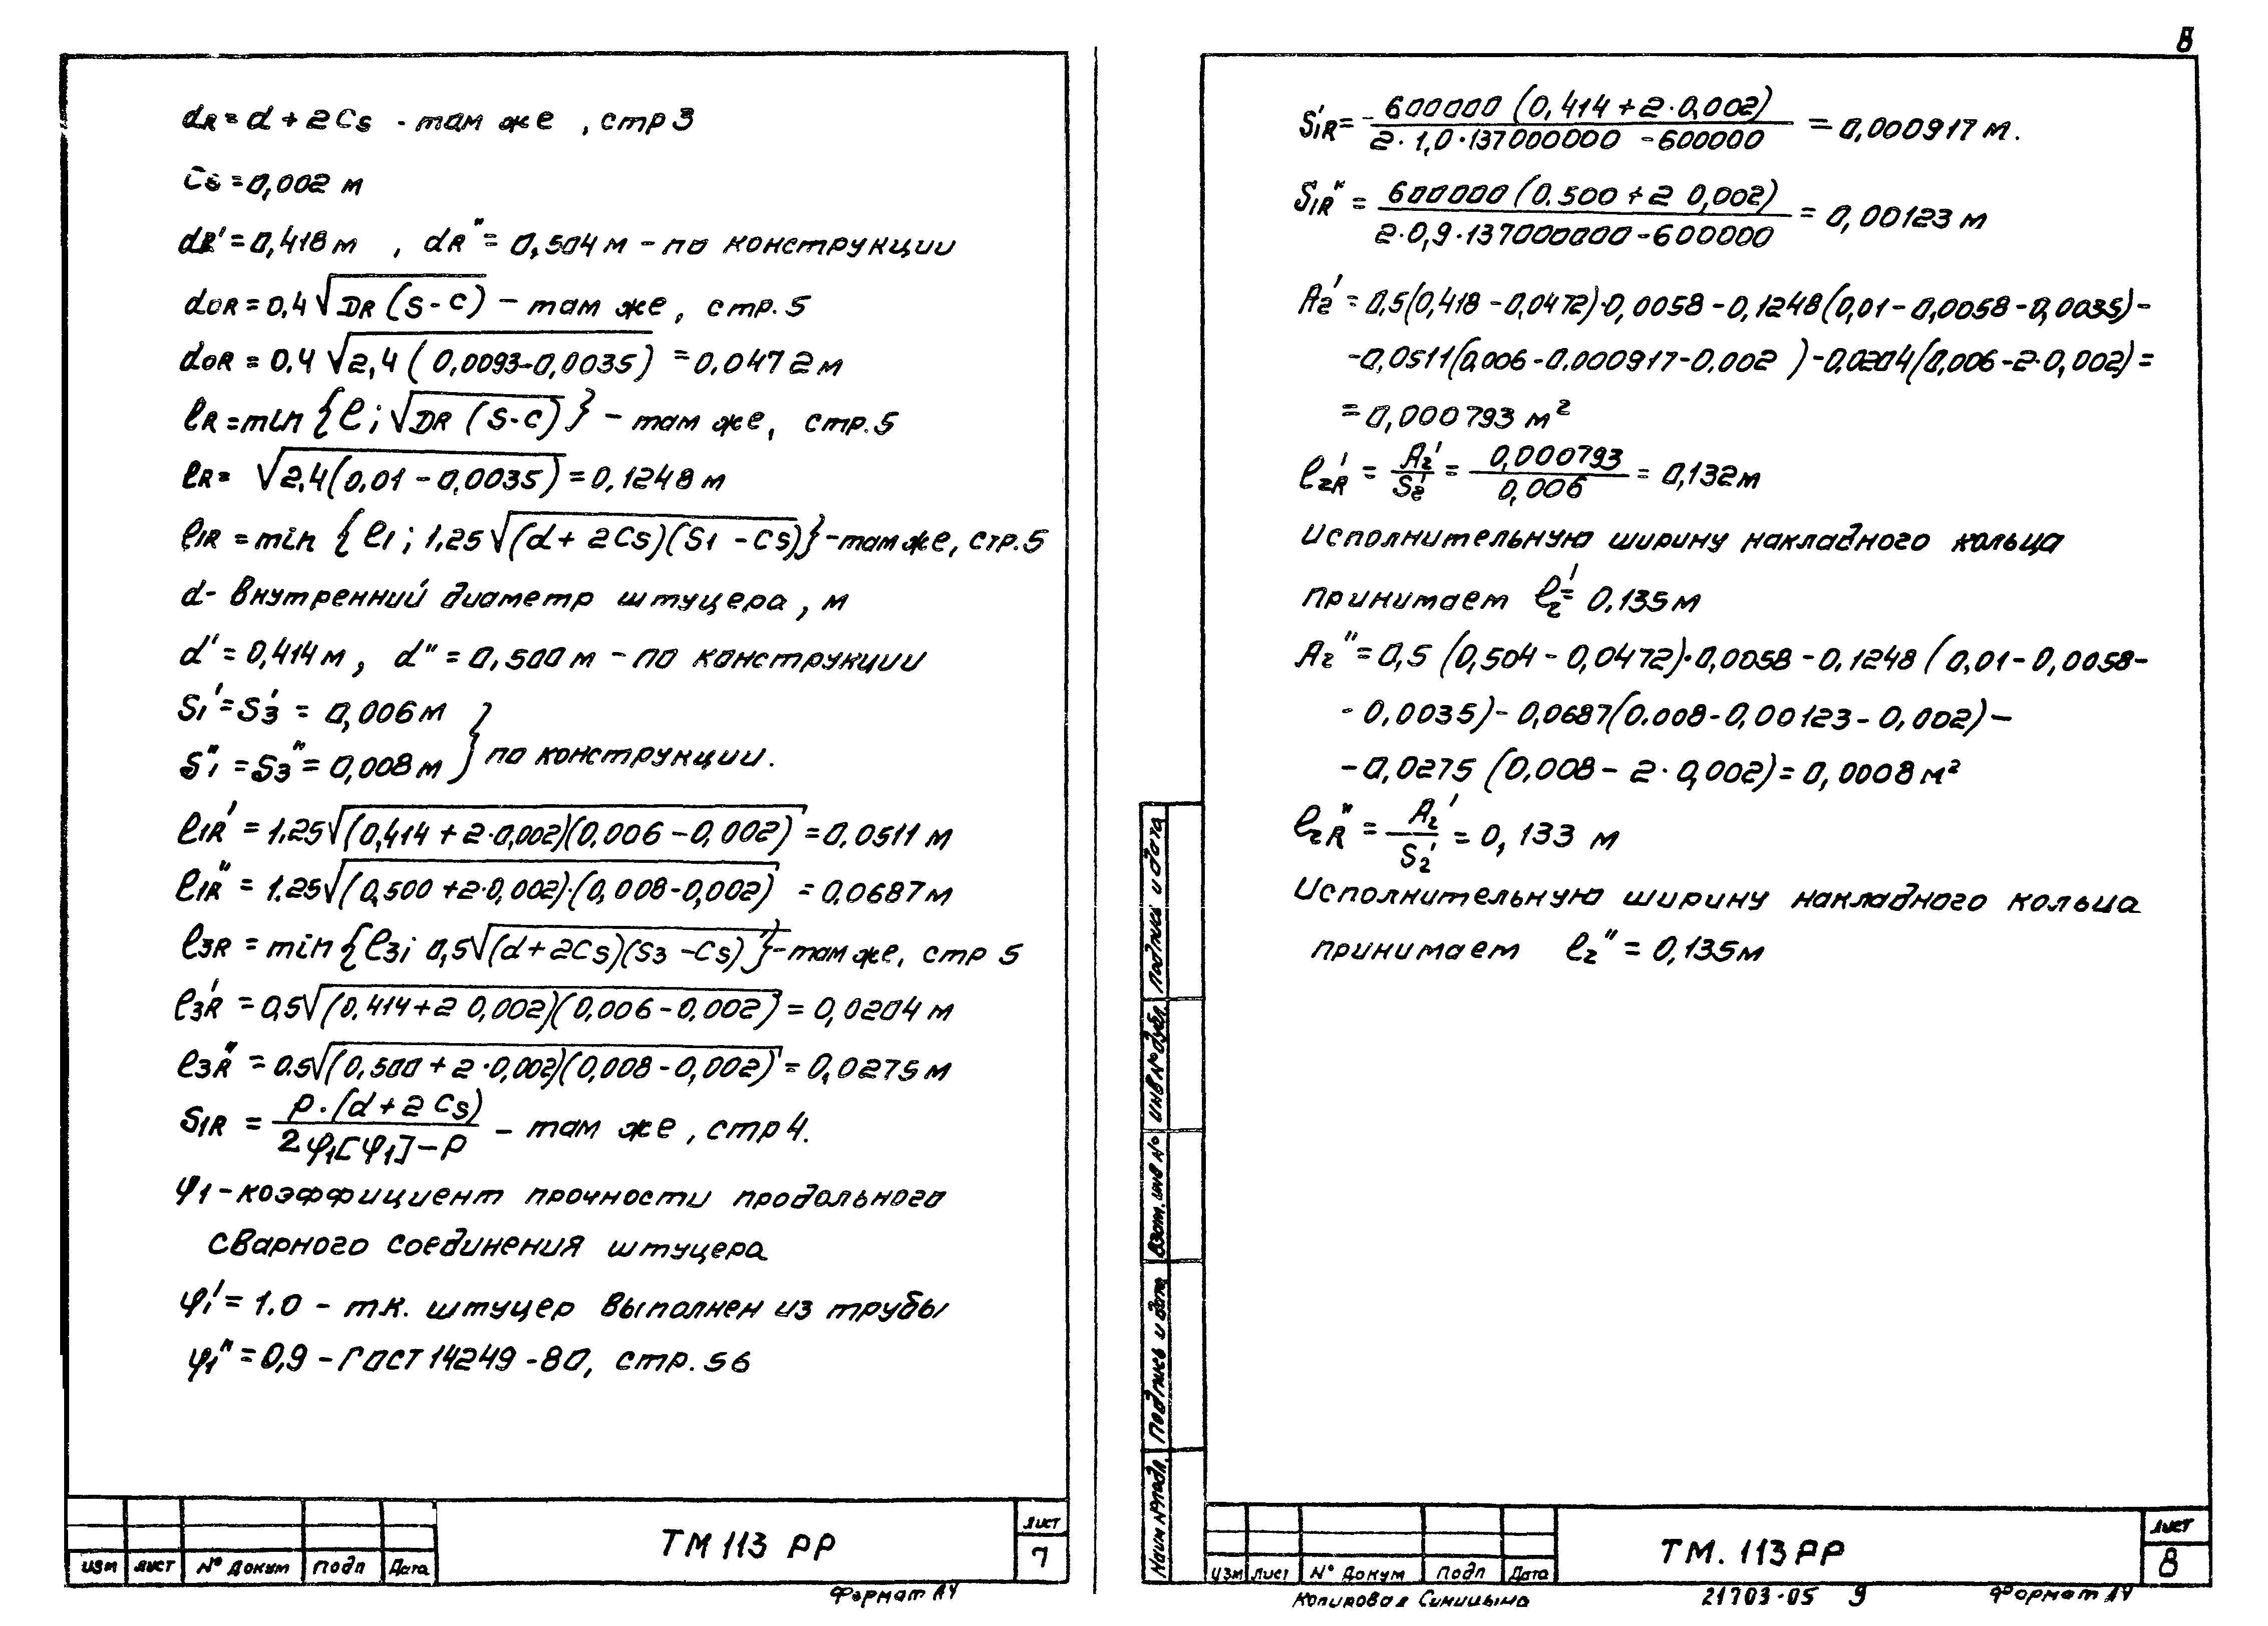 dR = d + 2Cs - там же , стр 3
Cs = 0,002 м
dR' = 0,418 м , dR" = 0,504 м - по конструкции
doR = 0,4 √DR (S - C) - там же, стр. 5
doR = 0,4 √2,4 (0,0093-0,0035) = 0,0472 м
ℓR = min {ℓ; √DR (S-C)} - там же, стр. 5
ℓR = √2,4(0,01 - 0,0035) = 0,1248 м
ℓ1R = min {ℓ1; 1,25 √(d + 2Cs)(S1 - Cs)} - там же, стр. 5
d - внутренний диаметр штуцера, м
d' = 0,414 м, d" = 0,500 м - по конструкции
S1' = S3' = 0,006 м
S1" = S3" = 0,008 м } по конструкции.
ℓ1R' = 1,25√(0,414 + 2·0,002)(0,006 - 0,002) = 0,0511 м
ℓ1R" = 1.25√(0,500 + 2·0,002)·(0,008-0,002) = 0,0687 м
ℓ3R = min {ℓ3; 0,5√(d + 2Cs)(S3 - Cs)} - там же, стр 5
ℓ3R' = 0,5√(0,414 + 2 0,002)(0,006 - 0,002) = 0,0204 м
ℓ3R" = 0.5√(0,500 + 2·0,002)(0,008 - 0,002) = 0,0275 м
S1R = P·(d + 2Cs) / 2φ1[φ1] - P - там же, стр 4.
φ1 - коэффициент прочности продольного
сварного соединения штуцера
φ1' = 1.0 - т.к. штуцер выполнен из трубы
φ1" = 0,9 - ГОСТ 14249-80, стр. 56
изм лист № докум подп Дата
ТМ 113 РР
лист
7
Формат А4
8
S1R' = 600000 (0,414 + 2·0,002) / 2·1,0·137000000 - 600000 = 0,000917 м.
S1R" = 600000 (0.500 + 2 0,002) / 2·0,9·137000000 - 600000 = 0,00123 м
A2' = 0,5(0,418 - 0,0472)·0,0058 - 0,1248(0,01 - 0,0058 - 0,0035) -
- 0,0511(0,006 - 0.000917 - 0.002 ) - 0,0204(0,006 - 2·0,002) =
= 0,000793 м²
ℓ2R' = A2' / S2' = 0,000793 / 0,006 = 0,132 м
Исполнительную ширину накладного кольца
принимаем ℓ2' = 0,135 м
A2" = 0,5 (0,504 - 0,0472)·0,0058 - 0,1248 (0,01 - 0,0058 -
- 0,0035) - 0,0687(0.008 - 0,00123 - 0,002) -
- 0,0275 (0,008 - 2·0,002) = 0,0008 м²
ℓ2R" = A2' / S2' = 0,133 м
Исполнительную ширину накладного кольца
принимаем ℓ2" = 0,135 м
Подпись и дата
ИНВ № дубл
Взам. инв №
Подпись и дата
изм лист № докум подп Дата
ТМ. 113 РР
лист
8
Копировал Синицына
21703-05 9
Формат А4